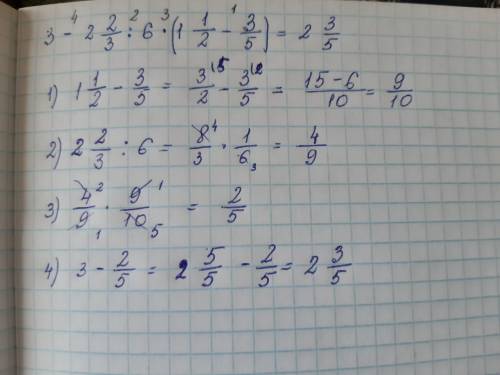 3 - 2 2/3 : 6 · (1 1/2 - 3/5) = 2 3/5
1) 1 1/2 - 3/5 = 3/2 - 3/5 = (15-6)/10 = 9/10
2) 2 2/3 : 6 = 8/3 · 1/6 = 4/9
3) 4/9 · 9/10 = 2/5
4) 3 - 2/5 = 2 5/5 - 2/5 = 2 3/5